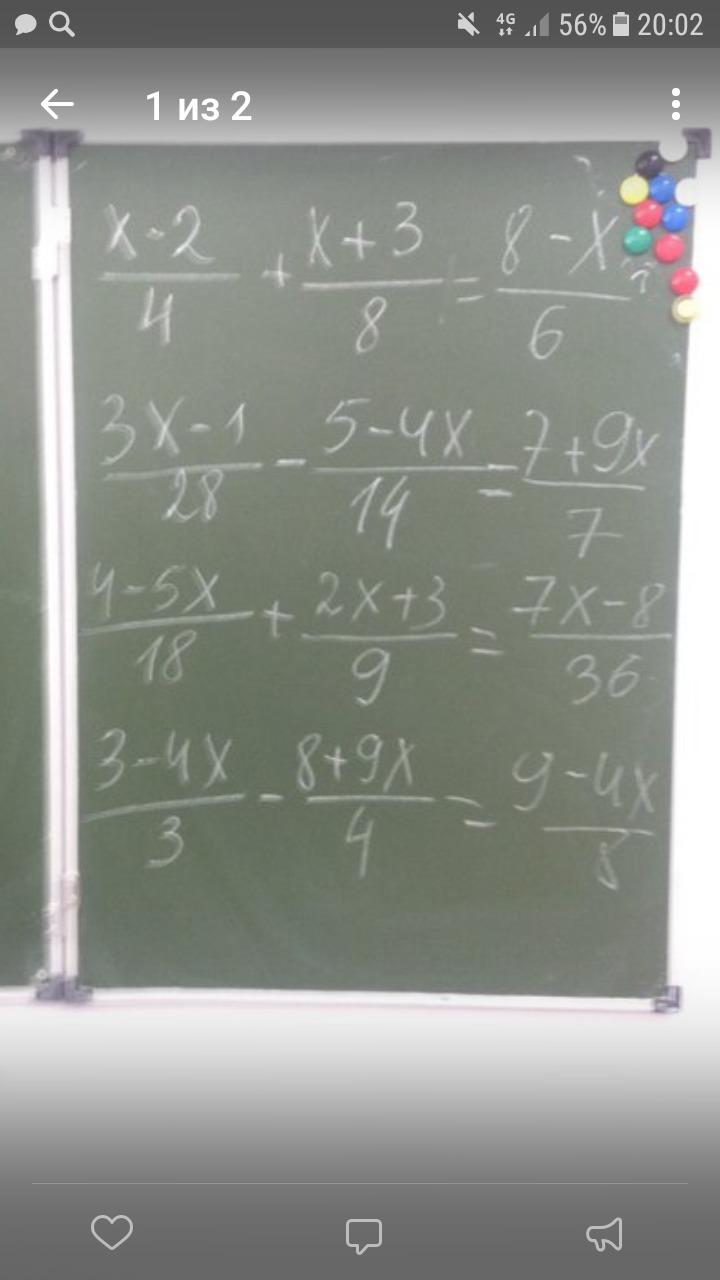 4G 56% 20:02
1 из 2
x-2/4 + x+3/8 = 8-x/6
3x-1/28 - 5-4x/14 = 7+9x/7
4-5x/18 + 2x+3/9 = 7x-8/36
3-4x/3 - 8+9x/4 = 9-4x/8